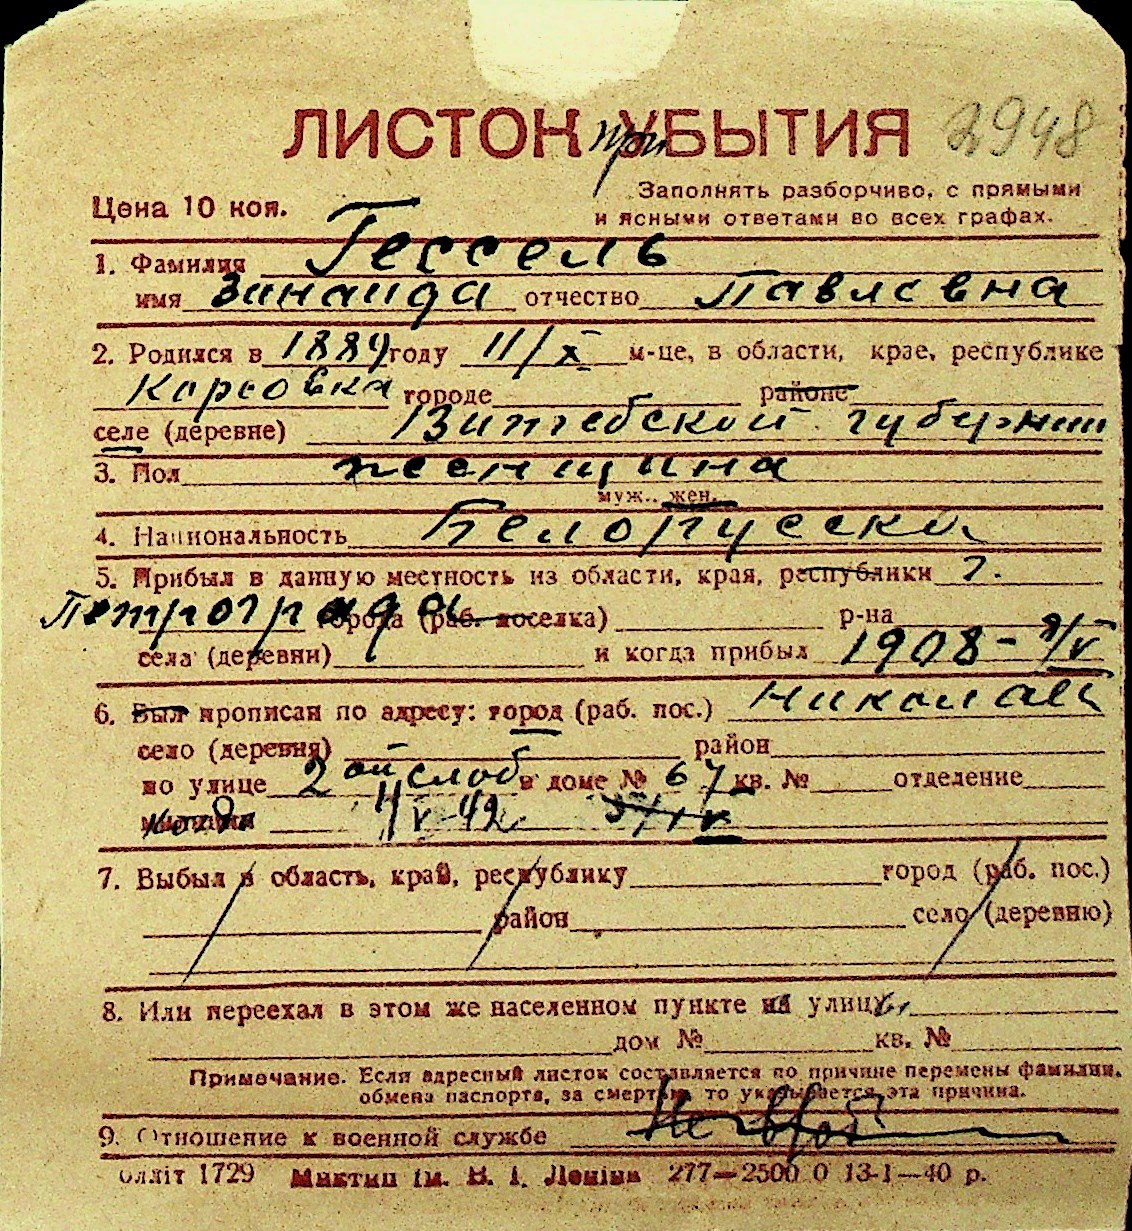 ЛИСТОК при УБЫТИЯ 2948
Цена 10 коп.
Заполнять разборчиво, с прямыми
и ясными ответами во всех графах.
1. Фамилия Гессель
имя Зинаида отчество Павловна
2. Родился в 1889 году 11/X м-це, в области, крае, республике
Корсовка городе районе
селе (деревне) Витебской губернии
3. Пол женщина
муж., жен.
4. Национальность Белорусска
5. Прибыл в данную местность из области, края, республики г.
Петрограда города (раб. поселка) р-на
села (деревни) и когда прибыл 1908 - 9/V
6. Был прописан по адресу: город (раб. пос.) Николаев
село (деревня) район
по улице 2ой слоб в доме № 67 кв. № отделение
когда 4/V-42
7. Выбыл в область, край, республику город (раб. пос.)
район село (деревню)
8. Или переехал в этом же населенном пункте на улицу
дом № кв. №
Примечание. Если адресный листок составляется по причине перемены фамилии,
обмена паспорта, за смертью, то указывается эта причина.
9. Отношение к военной службе
Облліт 1729 Миктип ім. В. І. Леніна 277—2500 0 13-1—40 р.